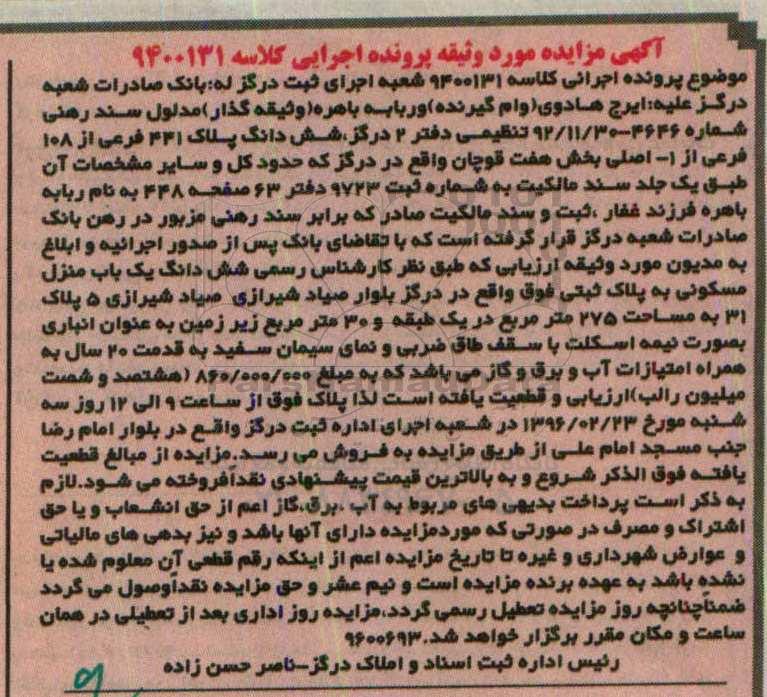 آگهی مزایده مورد وثیقه پرونده اجرایی کلاسه ۹۴۰۰۱۳۱
موضوع پرونده اجرائی کلاسه ۹۴۰۰۱۳۱ شعبه اجرای ثبت درگز له:بانک صادرات شعبه
درگـز علیه:ایرج هـادوی(وام گیرنده)وربابـه باهره(وثیقه گذار)مدلول سـند رهنی
شـماره ۴۶۴۶-۹۲/۱۱/۳۰ تنظیمـی دفتر ۲ درگز،شـش دانگ پـلاک ۴۴۱ فرعی از ۱۰۸
فرعی از ۱- اصلی بخش هفت قوچان واقع در درگز که حدود کل و سـایر مشخصات آن
طبـق یک جلد سـند مالکیت به شـماره ثبت ۹۷۲۳ دفتر ۶۳ صفحـه ۴۴۸ به نام ربابه
باهره فرزند غفار ،ثبت و سند مالکیت صادر که برابر سند رهنی مزبور در رهن بانک
صادرات شعبه درگز قرار گرفته است که با تقاضای بانک پس از صدور اجرائیه و ابلاغ
به مدیون مورد وثیقه ارزیابی که طبق نظر کارشناس رسمی شش دانگ یک باب منزل
مسکونی به پلاک ثبتی فوق واقع در درگز بلوار صیاد شیرازی صیاد شیرازی ۵ پلاک
۳۱ به مسـاحت ۲۷۵ متر مربع در یک طبقه و ۳۰ متر مربع زیر زمین به عنوان انباری
بصورت نیمه اسـکلت با سـقف طاق ضربی و نمای سیمان سـفید به قدمت ۲۰ سال به
همراه امتیازات آب و برق و گاز می باشد که به مبلغ ۸۶۰/۰۰۰/۰۰۰ (هشتصد و شصت
میلیون رالب)ارزیابی و قطعیت یافته اسـت لذا پلاک فوق از سـاعت ۹ الی ۱۲ روز سه
شـنبه مورخ ۱۳۹۶/۰۲/۲۳ در شـعبه اجرای اداره ثبت درگز واقـع در بلوار امام رضا
جنب مسـجد امام علـی از طریق مزایده به فـروش می رسـد.مزایده از مبالغ قطعیت
یافتـه فوق الذکر شـروع و به بالاترین قیمت پیشـنهادی نقداًفروخته می شـود.لازم
به ذکر اسـت پرداخت بدیهی های مربوط به آب ،برق،گاز اعم از حق انشـعاب و یا حق
اشتراک و مصرف در صورتی که موردمزایده دارای آنها باشد و نیز بدهی های مالیاتی
و عوارض شهرداری و غیره تا تاریخ مزایده اعم از اینکه رقم قطعی آن معلوم شده یا
نشده باشد به عهده برنده مزایده است و نیم عشر و حق مزایده نقداًوصول می گردد
ضمناًچنانچه روز مزایده تعطیل رسمی گردد،مزایده روز اداری بعد از تعطیلی در همان
ساعت و مکان مقرر برگزار خواهد شد.۹۶۰۰۶۹۳
رئیس اداره ثبت اسناد و املاک درگز-ناصر حسن زاده